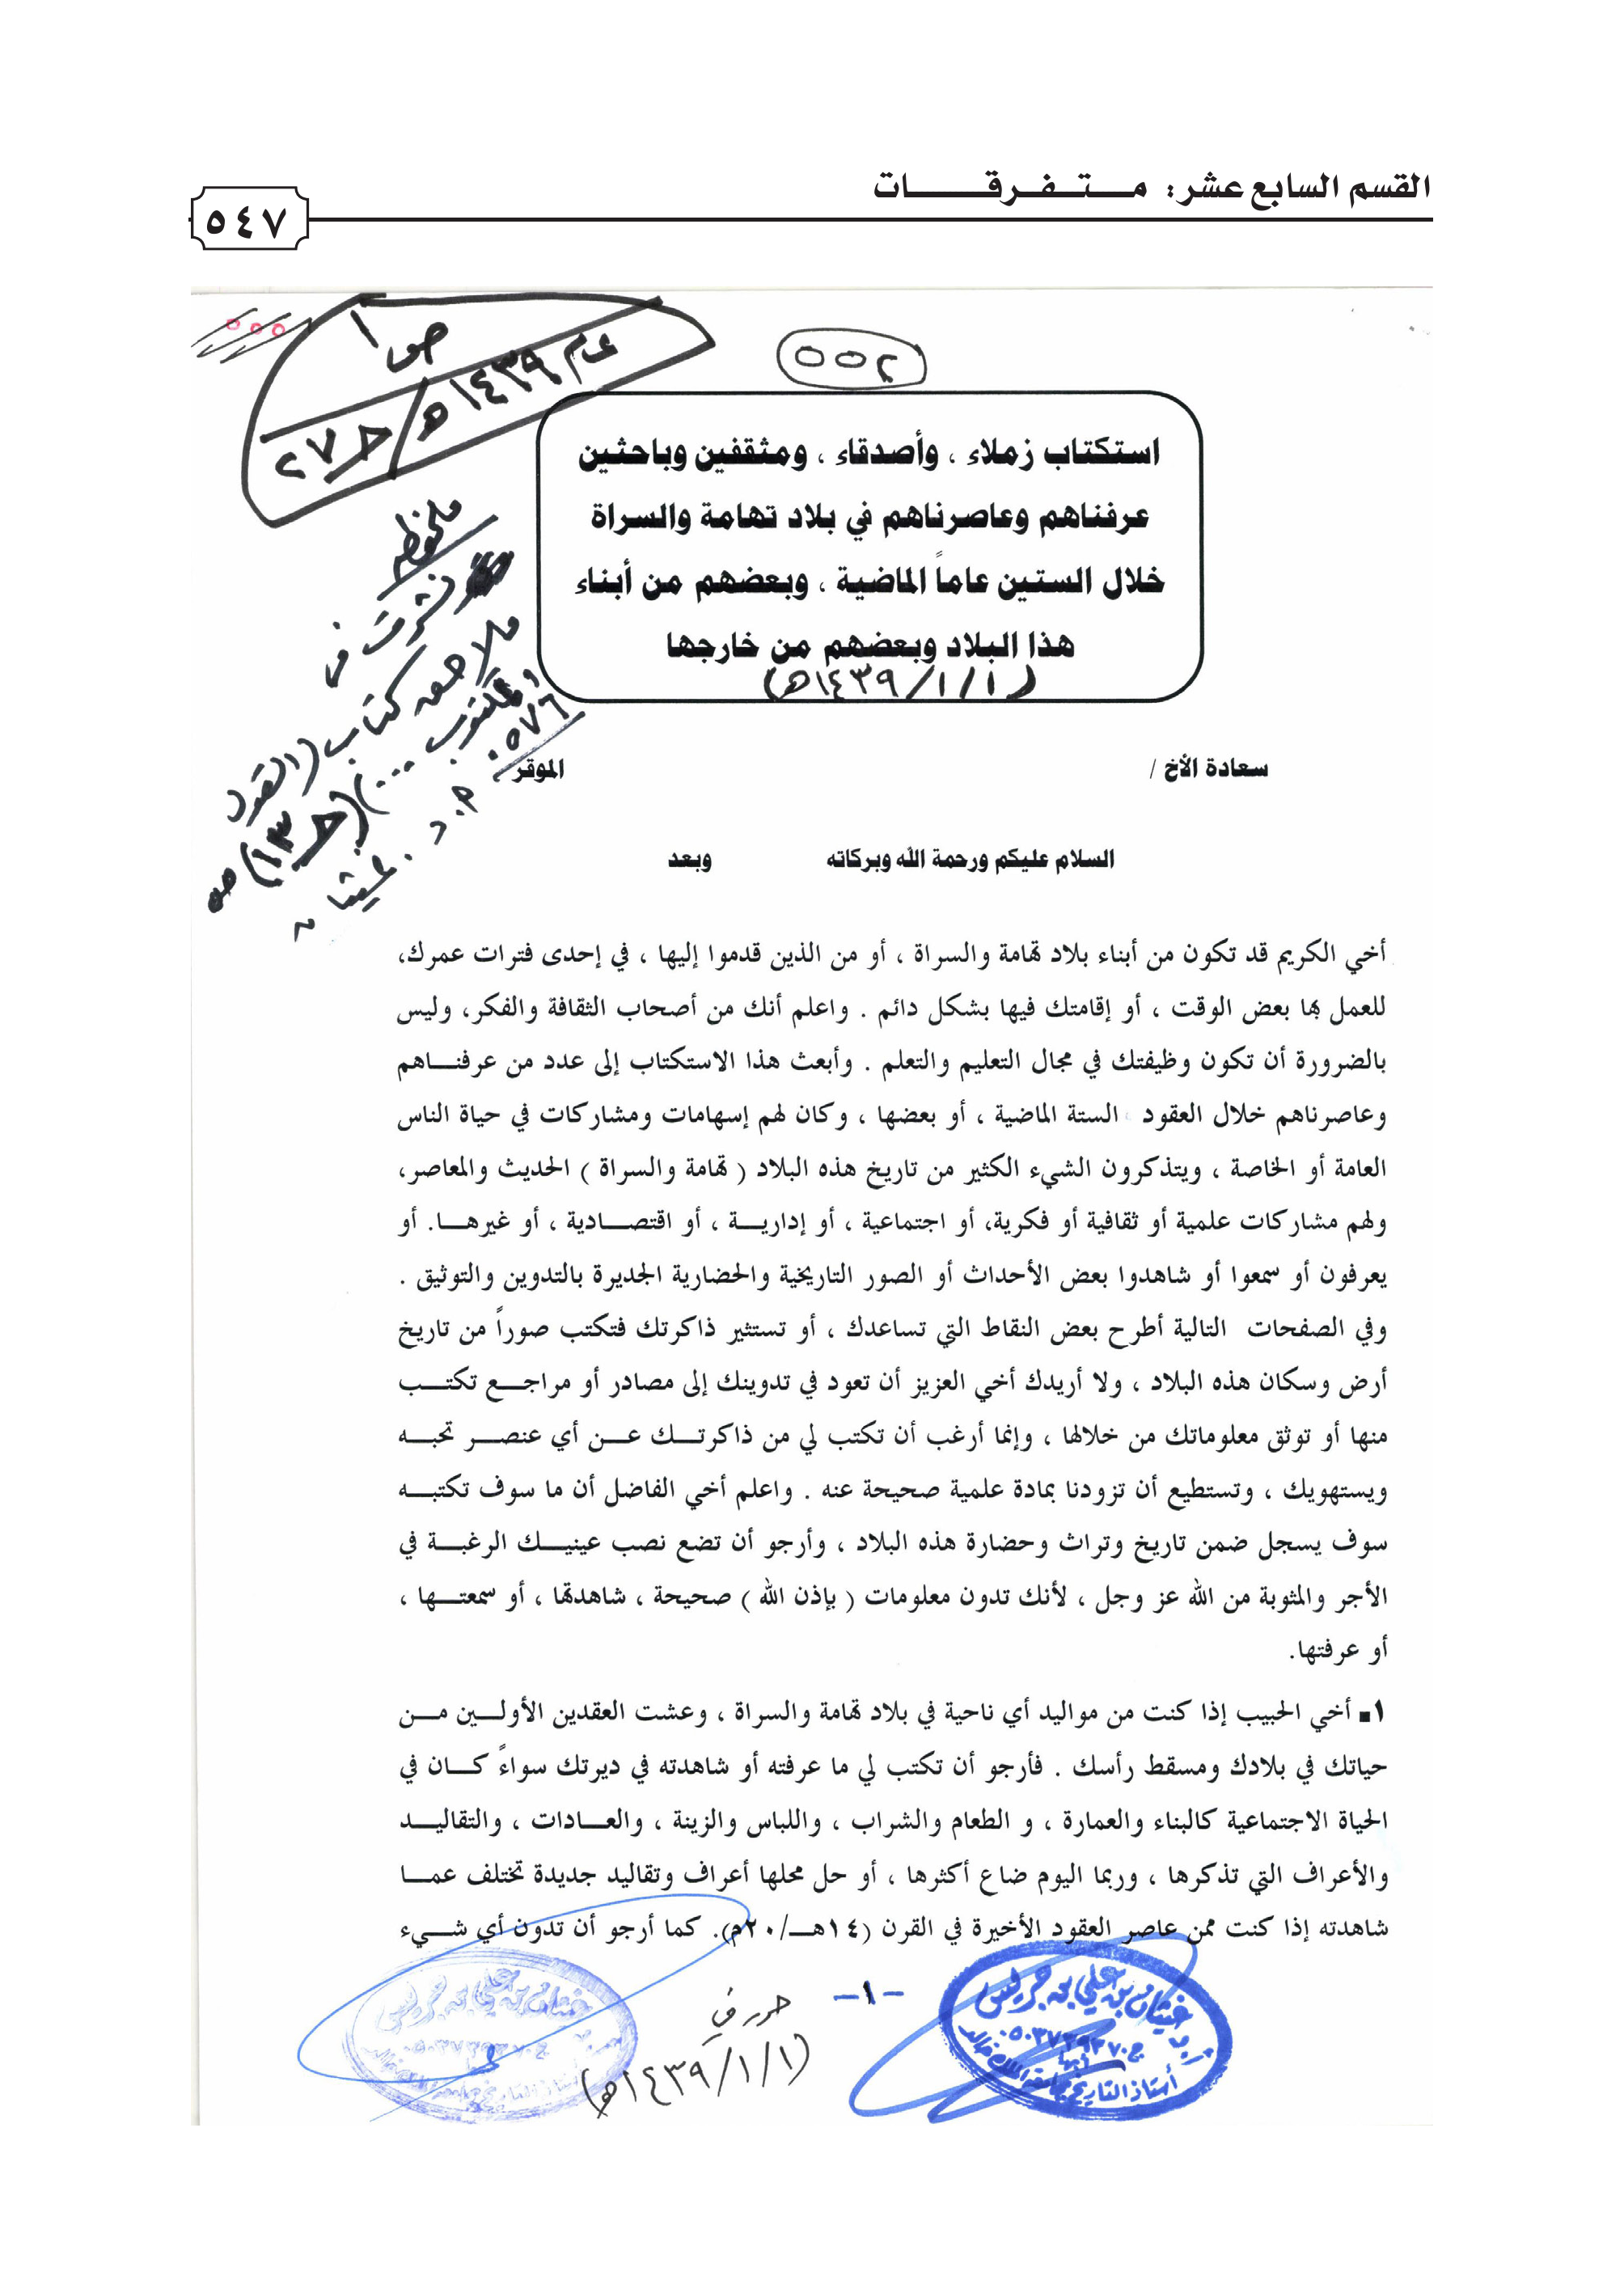 القسم السابع عشر: متفرقات
٥٤٧
ص ١
عام ١٤٣٩هـ / ج ٢٧
٥٥٢
استكتاب زملاء ، وأصدقاء ، ومثقفين وباحثين
عرفناهم وعاصرناهم في بلاد تهامة والسراة
خلال الستين عاماً الماضية ، وبعضهم من أبناء
هذا البلاد وبعضهم من خارجها
(١/١/١٤٣٩هـ)
ملحوظة
نشرت في
ملاحق كتاب (القول
المكتوب ...)
(ج١٣) ص
٥٧٦
سعادة الأخ / الموقر
السلام عليكم ورحمة الله وبركاته وبعد
أخي الكريم قد تكون من أبناء بلاد تهامة والسراة ، أو من الذين قدموا إليها ، في إحدى فترات عمرك،
للعمل بها بعض الوقت ، أو إقامتك فيها بشكل دائم . واعلم أنك من أصحاب الثقافة والفكر، وليس
بالضرورة أن تكون وظيفتك في مجال التعليم والتعلم . وأبعث هذا الاستكتاب إلى عدد من عرفنــاهم
وعاصرناهم خلال العقود الستة الماضية ، أو بعضها ، وكان لهم إسهامات ومشاركات في حياة الناس
العامة أو الخاصة ، ويتذكرون الشيء الكثير من تاريخ هذه البلاد ( تهامة والسراة ) الحديث والمعاصر،
ولهم مشاركات علمية أو ثقافية أو فكرية، أو اجتماعية ، أو إداريــة ، أو اقتصــادية ، أو غيرهــا. أو
يعرفون أو سمعوا أو شاهدوا بعض الأحداث أو الصور التاريخية والحضارية الجديرة بالتدوين والتوثيق .
وفي الصفحات التالية أطرح بعض النقاط التي تساعدك ، أو تستثير ذاكرتك فتكتب صوراً من تاريخ
أرض وسكان هذه البلاد ، ولا أريدك أخي العزيز أن تعود في تدوينك إلى مصادر أو مراجــع تكتــب
منها أو توثق معلوماتك من خلالها ، وإنما أرغب أن تكتب لي من ذاكرتــك عــن أي عنصــر تحبــه
ويستهويك ، وتستطيع أن تزودنا بمادة علمية صحيحة عنه . واعلم أخي الفاضل أن ما سوف تكتبــه
سوف يسجل ضمن تاريخ وتراث وحضارة هذه البلاد ، وأرجو أن تضع نصب عينيــك الرغبــة في
الأجر والمثوبة من الله عز وجل ، لأنك تدون معلومات ( بإذن الله ) صحيحة ، شاهدتها ، أو سمعتــها ،
أو عرفتها.
١■ أخي الحبيب إذا كنت من مواليد أي ناحية في بلاد تهامة والسراة ، وعشت العقدين الأولــين مــن
حياتك في بلادك ومسقط رأسك . فأرجو أن تكتب لي ما عرفته أو شاهدته في ديرتك سواءً كــان في
الحياة الاجتماعية كالبناء والعمارة ، و الطعام والشراب ، واللباس والزينة ، والعــادات ، والتقاليــد
والأعراف التي تذكرها ، وربما اليوم ضاع أكثرها ، أو حل محلها أعراف وتقاليد جديدة تختلف عمــا
شاهدته إذا كنت ممن عاصر العقود الأخيرة في القرن (١٤هــ/٢٠م). كما أرجو أن تدون أي شــيء
-١-
حرر في
(١/١/١٤٣٩هـ)
غيثان بن علي بن جريس
ج ٠٥٠٣٧٣٩٣٧٠
أبها
أستاذ التاريخ بجامعة الملك خالد
غيثان بن علي بن جريس